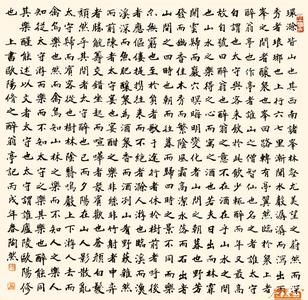 環滁皆山也其西南諸峯林壑尤美望之蔚然而深
秀者琅琊也山行六七里漸聞水聲潺潺而瀉出於兩
峯之間者釀泉也峯回路轉有亭翼然臨於泉上者
醉翁亭也作亭者誰山之僧智仙也名之者誰太守
自謂也太守與客來飲於此飲少輒醉而年又最高
故自號曰醉翁也醉翁之意不在酒在乎山水之間
也山水之樂得之心而寓之酒也若夫日出而林霏
開雲歸而巖穴暝晦明變化者山間之朝暮也野芳
發而幽香佳木秀而繁陰風霜高潔水落而石出者
山間之四時也朝而往暮而歸四時之景不同而樂
亦無窮也至於負者歌於途行者休於樹前者呼後
者應傴僂提攜往來而不絕者滁人遊也臨溪而漁
溪深而魚肥釀泉為酒泉香而酒洌山肴野蔌雜然
而前陳者太守宴也宴酣之樂非絲非竹射者中弈
者勝觥籌交錯起坐而諠譁者眾賓歡也蒼顏白髮
頹然乎其間者太守醉也已而夕陽在山人影散亂
太守歸而賓客從也樹林陰翳鳴聲上下遊人去而
禽鳥樂也然而禽鳥知山林之樂而不知人之樂人
知從太守遊而樂而不知太守之樂其樂也醉能同
其樂醒能述以文者太守也太守謂誰廬陵歐陽修
也 上書歐陽修之醉翁亭記丙戌年春陶然